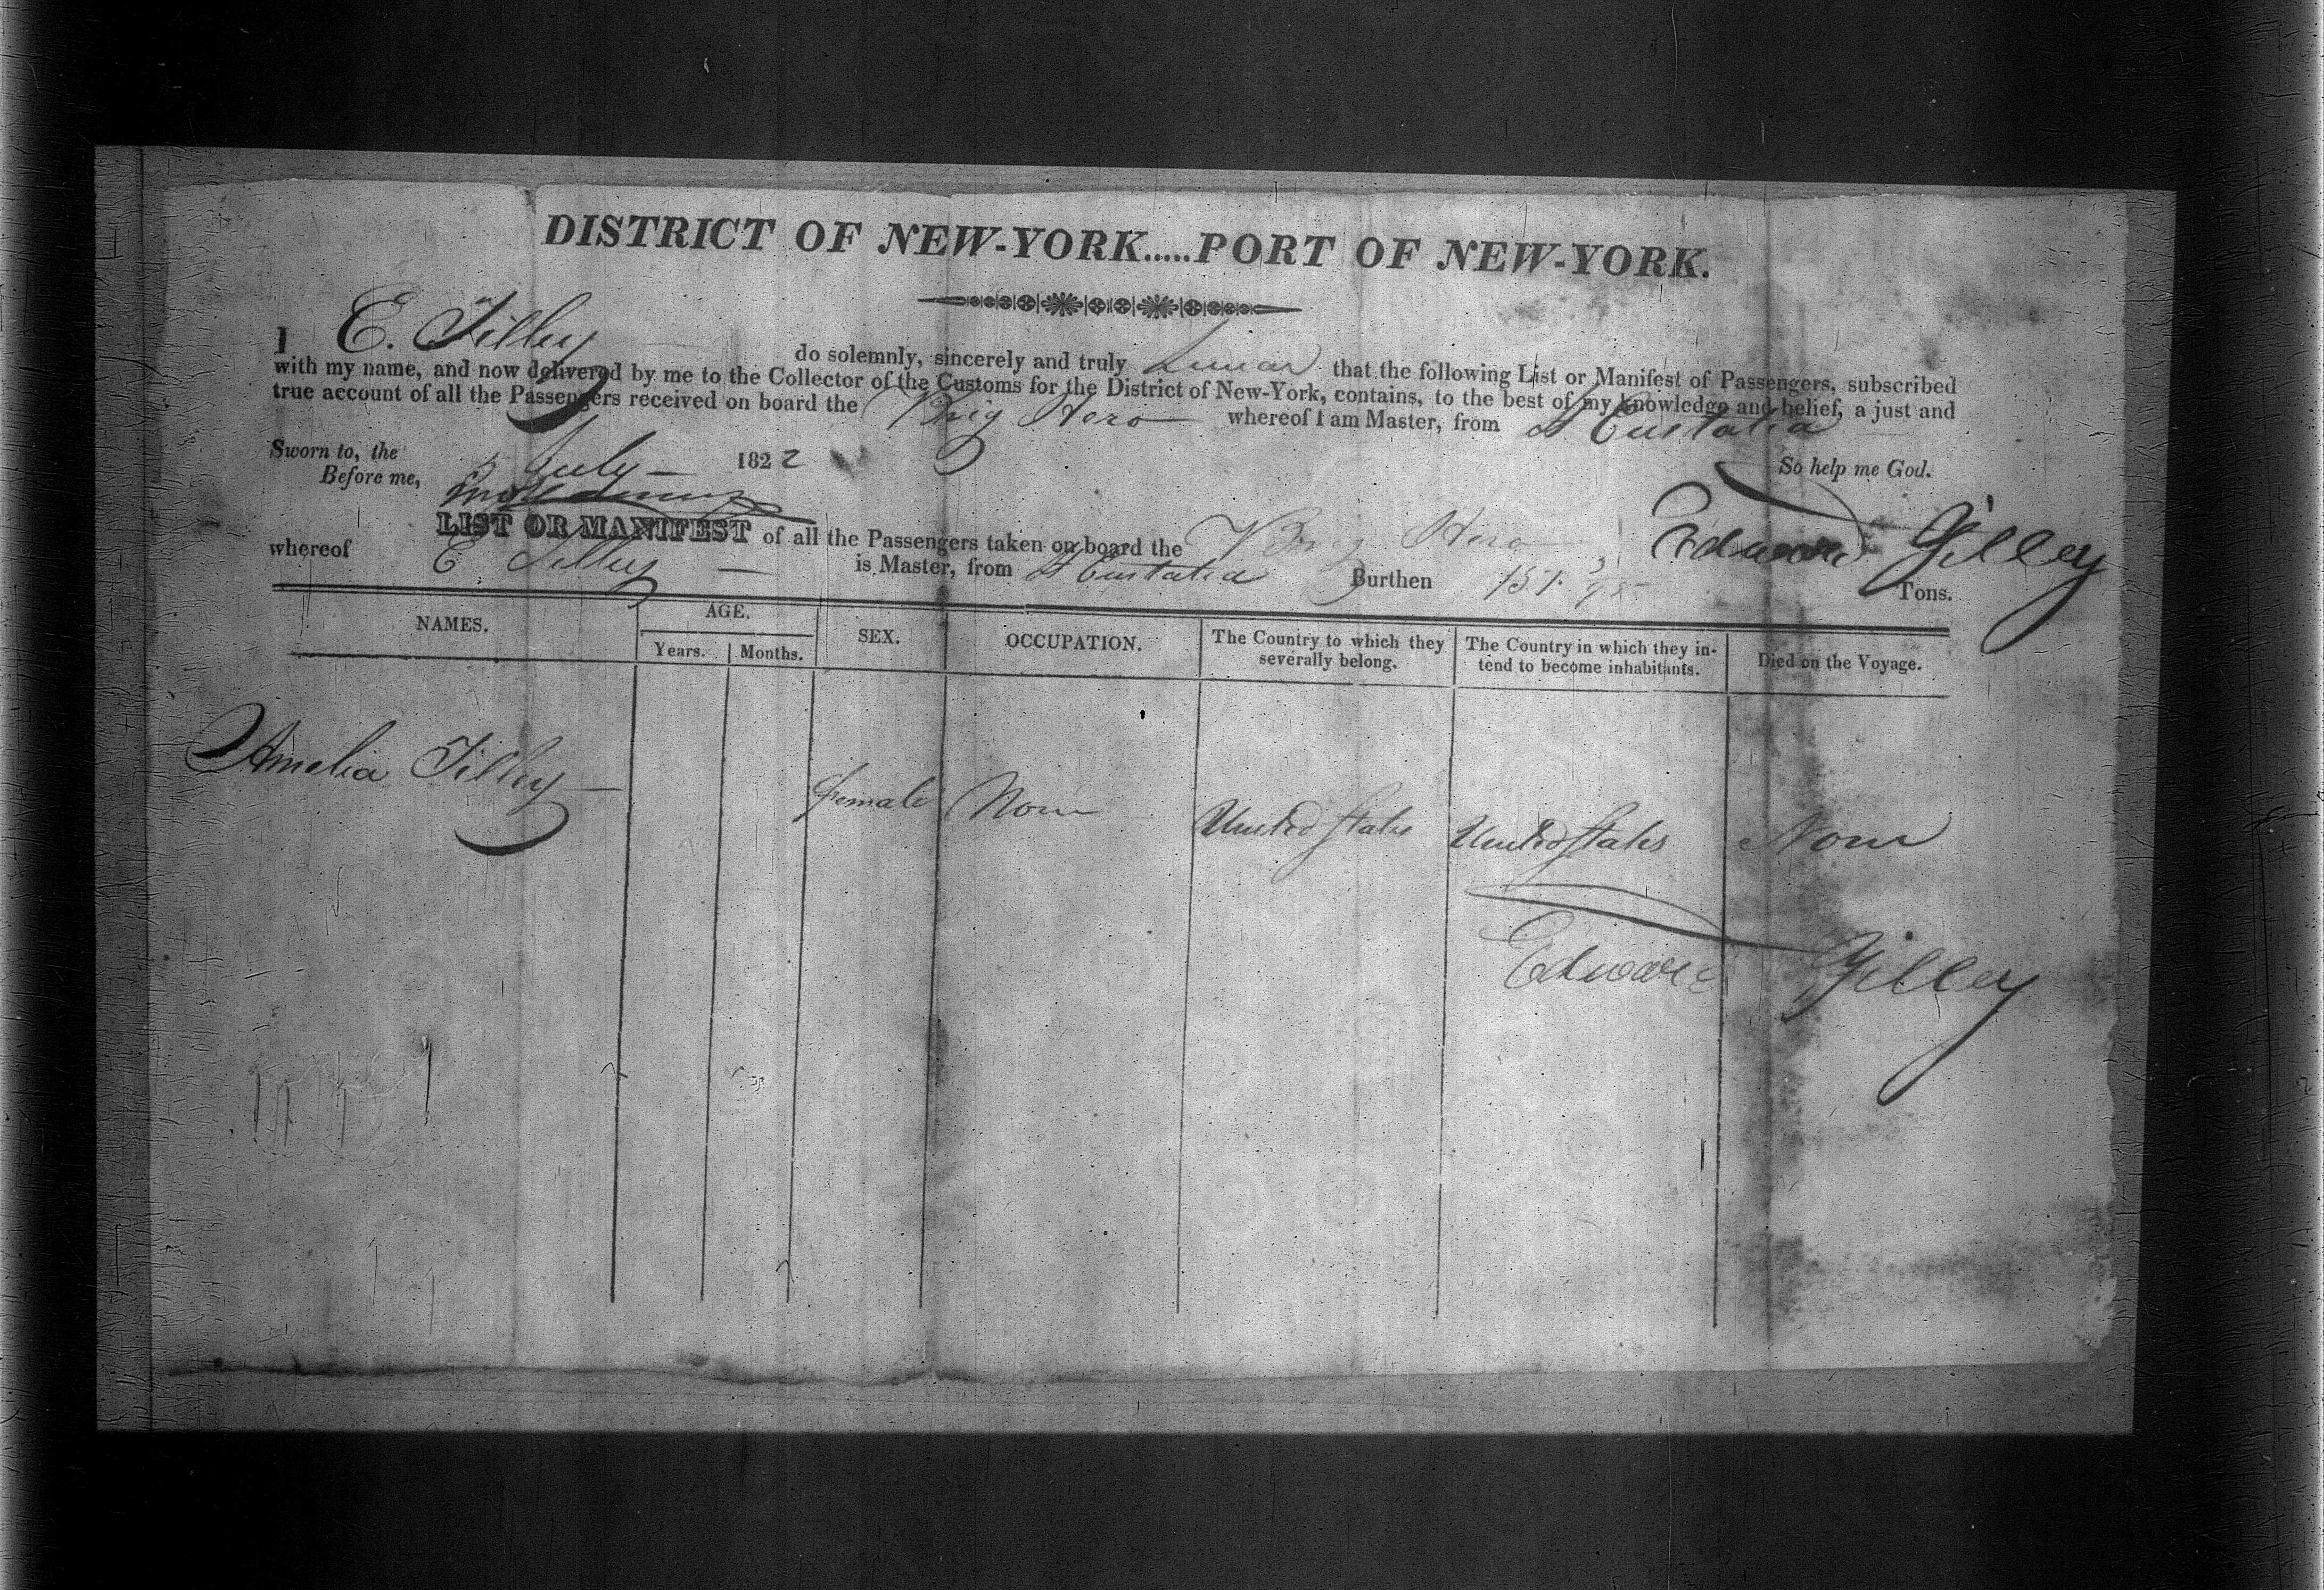 DISTRICT OF NEW-YORK.....PORT OF NEW-YORK.
I E. Tilley do solemnly, sincerely and truly swear that the following List or Manifest of Passengers, subscribed
with my name, and now delivered by me to the Collector of the Customs for the District of New-York, contains, to the best of my knowledge and belief, a just and
true account of all the Passengers received on board the Brig Hero whereof I am Master, from St Eustatia
Sworn to, the 5 July 1822 So help me God.
Before me,
Edward Tilley
LIST OR MANIFEST of all the Passengers taken on board the Brig Hero
whereof E Tilley is Master, from St Eustatia Burthen 151 Tons.
NAMES. AGE. Years. Months. SEX. OCCUPATION. The Country to which they severally belong. The Country in which they intend to become inhabitants. Died on the Voyage.
Amelia Tilley female None United States United States None
Edward Tilley